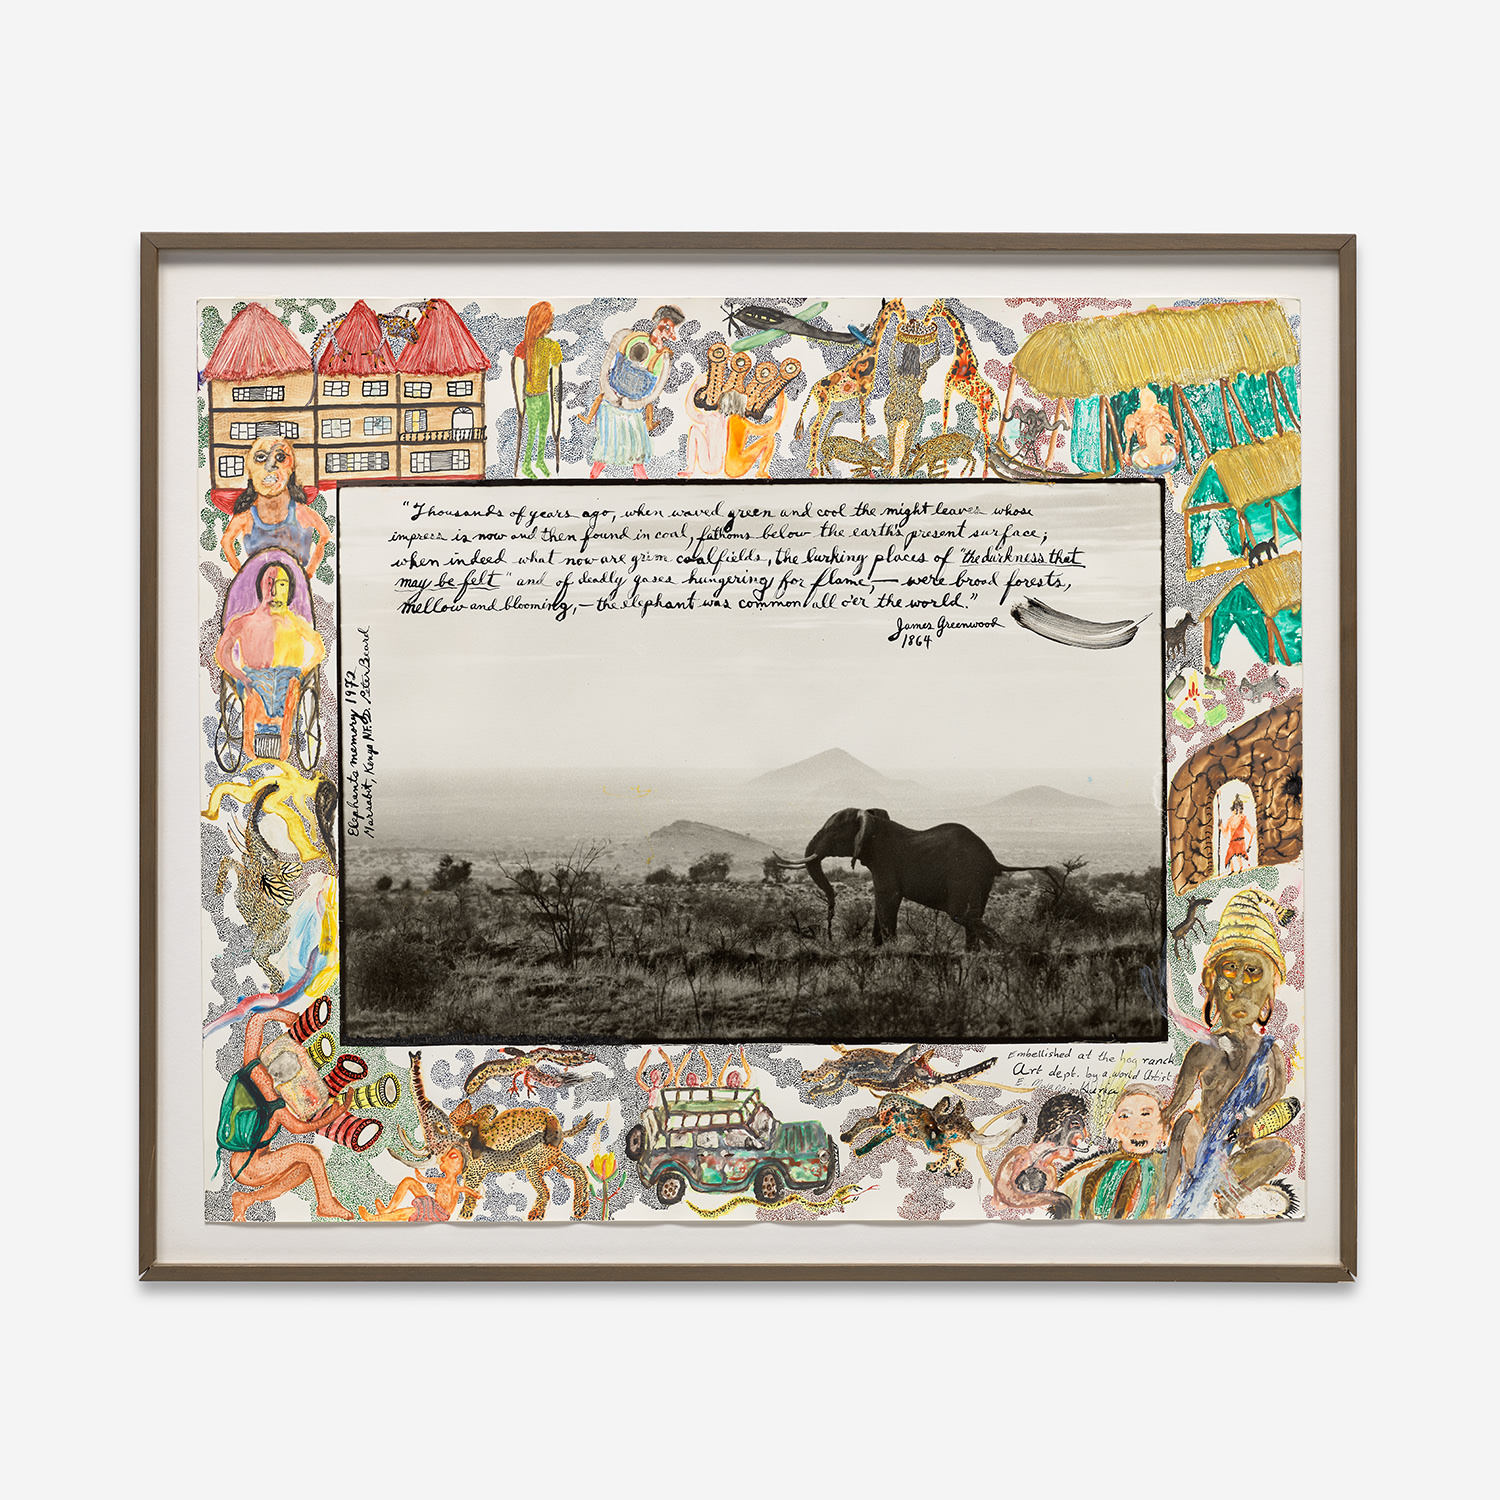 "Thousands of years ago, when waved green and cool the might leaves whose
impress is now and then found in coal, fathoms below the earth's present surface;
when indeed what now are grim coalfields, the lurking places of "the darkness that
may be felt" and of deadly gases hungering for flame, — were broad forests,
mellow and blooming, — the elephant was common all o'er the world."
James Greenwood
1864
Elephants memory 1972
Marsabit, Kenya NFD. Peter Beard
Embellished at the hog ranch
Art dept. by a world Artist
E